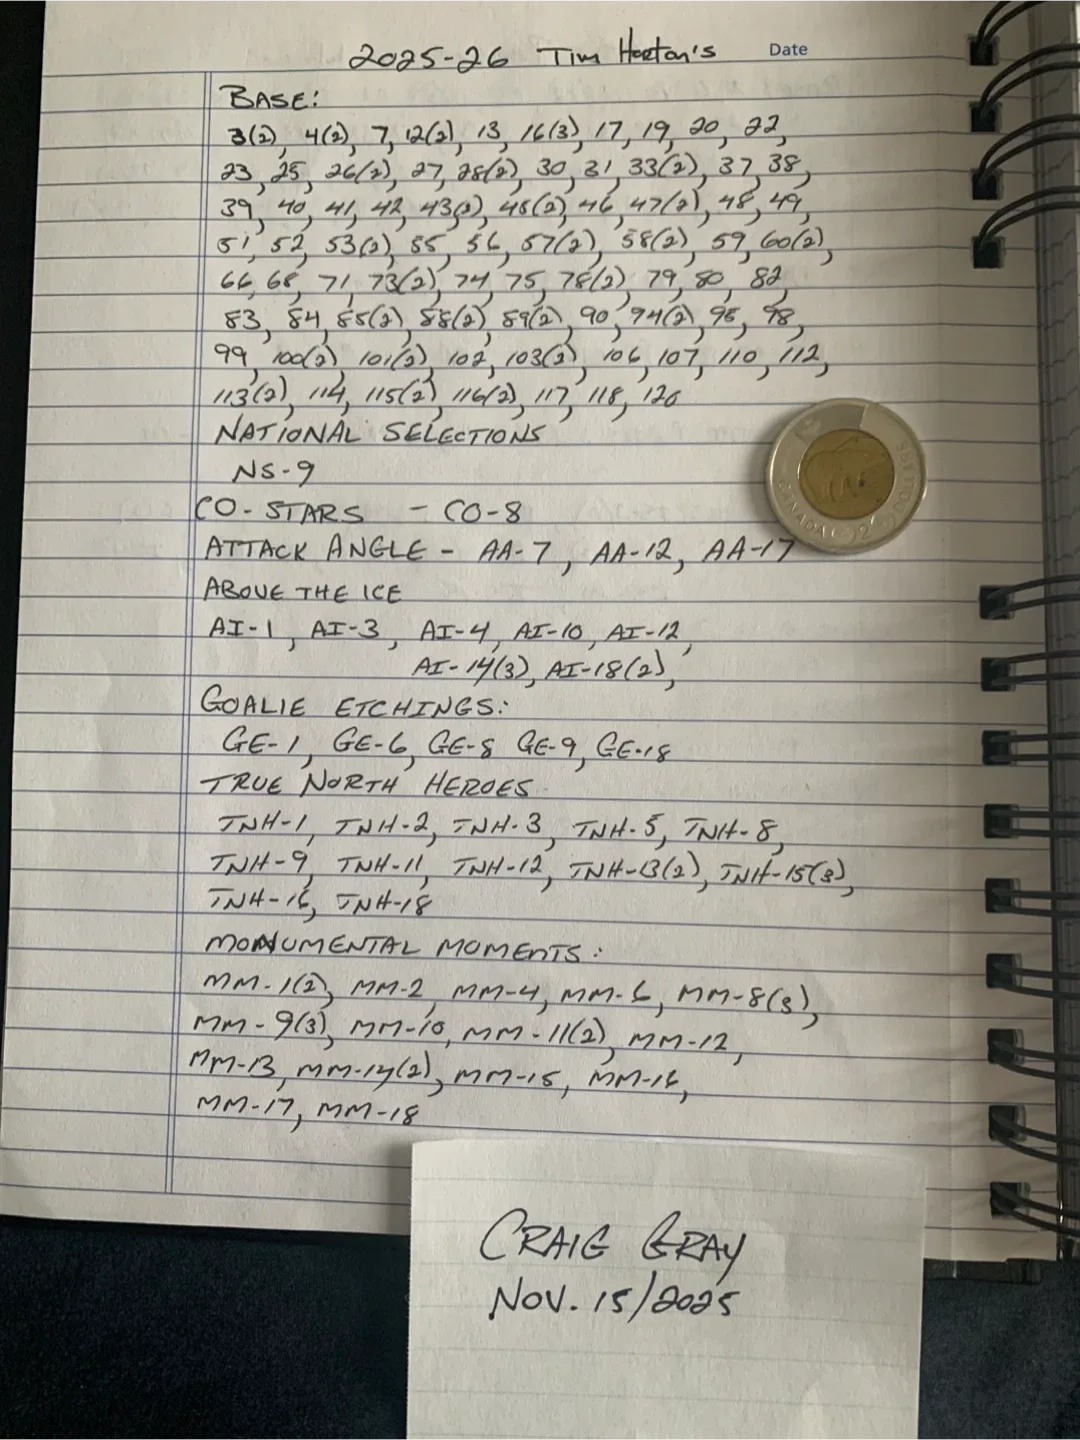 2025-26 Tim Horton's
Date
BASE:
3(2), 4(2), 7, 12(2), 13, 16(3), 17, 19, 20, 22,
23, 25, 26(2), 27, 28(2), 30, 31, 33(2), 37, 38,
39, 40, 41, 42, 43(2), 45(2), 46, 47(2), 48, 49,
51, 52, 53(2), 55, 56, 57(2), 58(2), 59, 60(2),
66, 68, 71, 73(2), 74, 75, 78(2), 79, 80, 82,
83, 84, 85(2), 88(2), 89(2), 90, 94(2), 95, 98,
99, 100(2), 101(2), 102, 103(2), 106, 107, 110, 112,
113(2), 114, 115(2), 116(2), 117, 118, 120
NATIONAL SELECTIONS
NS-9
CO-STARS - CO-8
ATTACK ANGLE - AA-7, AA-12, AA-17
ABOVE THE ICE
AI-1, AI-3, AI-4, AI-10, AI-12,
AI-14(3), AI-18(2),
GOALIE ETCHINGS:
GE-1, GE-6, GE-8 GE-9, GE-18
TRUE NORTH HEROES
TNH-1, TNH-2, TNH-3, TNH-5, TNH-8,
TNH-9, TNH-11, TNH-12, TNH-13(2), TNH-15(3),
TNH-16, TNH-18
MONUMENTAL MOMENTS:
MM-1(2), MM-2, MM-4, MM-6, MM-8(3),
MM-9(3), MM-10, MM-11(2), MM-12,
MM-13, MM-14(2), MM-15, MM-16,
MM-17, MM-18
CANADA 2
CRAIG GRAY
NOV. 15/2025